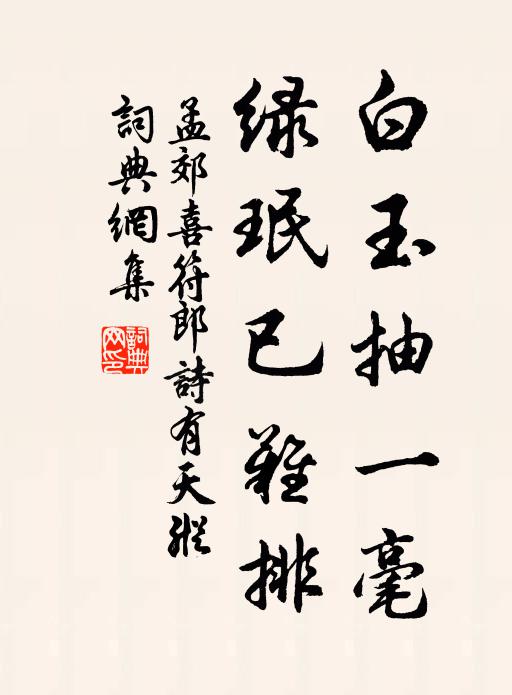 白玉抽一毫
绿珉已難排
孟郊喜符郎詩有天縱
詞典網集
詞典網印